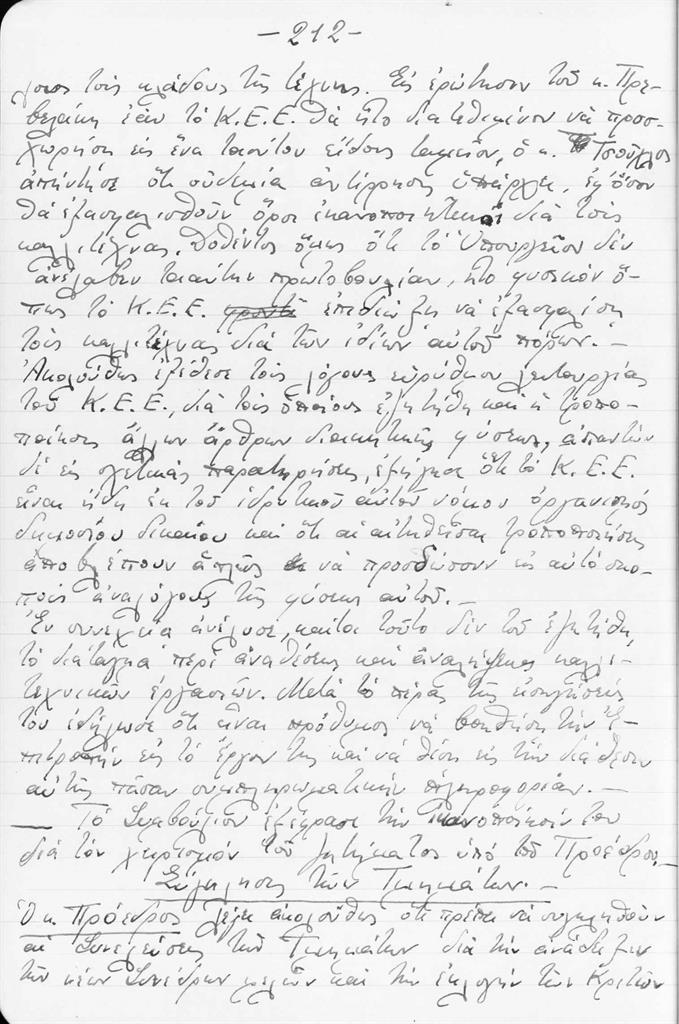 -212-
λους τοὺς κλάδους τῆς τέχνης. Εἰς ἐρώτησιν τοῦ κ. Πρε-
βελάκη ἐὰν τὸ Κ.Ε.Ε. θὰ ἦτο διατεθειμένον νὰ προσ-
χωρήση εἰς ἕνα τοιοῦτον εἴδους ταμεῖον, ὁ κ. Τσοῦχλος
ἀπήντησε ὅτι οὐδεμία ἀντίρρησις ὑπάρχει, ἐφ' ὅσον
θὰ ἐξασφαλισθοῦν ὅροι ἱκανοποιητικοὶ διὰ τοὺς
καλλιτέχνας. Δοθέντος ὅμως ὅτι τὸ Ὑπουργεῖον δὲν
ἀνέλαβεν τοιαύτην πρωτοβουλίαν, ἦτο φυσικὸν ὅ-
πως τὸ Κ.Ε.Ε. ἐπιδιώξη νὰ ἐξασφαλίση
τοὺς καλλιτέχνας διὰ τῶν ἰδίων αὐτοῦ πόρων.-
Ἀκολούθως ἐξέθεσε τοὺς λόγους εὐρύθμου λειτουργίας
τοῦ Κ.Ε.Ε., διὰ τοὺς ὁποίους ἐζητήθη καὶ ἡ τροπο-
ποίησις ἄλλων ἄρθρων διοικητικῆς φύσεως, ἀπαντῶν
δὲ εἰς σχετικὰς παρατηρήσεις, ἐξήγησε ὅτι τὸ Κ.Ε.Ε.
εἶναι ἤδη ἐκ τοῦ ἱδρυτικοῦ αὐτοῦ νόμου ὀργανισμὸς
δημοσίου δικαίου καὶ ὅτι αἱ αἰτηθεῖσαι τροποποιήσεις
ἀποβλέπουν ἁπλῶς νὰ προσδώσουν εἰς αὐτὸ σκο-
ποὺς ἀναλόγους τῆς φύσεως αὐτοῦ.-
Ἐν συνεχείᾳ ἀνέλυσε, καίτοι τοῦτο δὲν τοῦ ἐζητήθη,
τὸ διάταγμα περὶ ἀναθέσεως καὶ ἀναλήψεως καλλι-
τεχνικῶν ἐργασιῶν. Μετὰ τὸ πέρας τῆς εἰσηγήσεώς
του ἐδήλωσε ὅτι εἶναι πρόθυμος νὰ βοηθήση τὴν Ἐ-
πιτροπὴν εἰς τὸ ἔργον της καὶ νὰ θέση εἰς τὴν διάθεσιν
αὐτῆς πᾶσαν συμπληρωματικὴν πληροφορίαν.-
Τὸ Συμβούλιον ἐξέφρασε τὴν ἱκανοποίησίν του
διὰ τὸν χειρισμὸν τοῦ ζητήματος ὑπὸ τοῦ Προέδρου.-
Σύγκλησις τῶν Τμημάτων.-
Ὁ κ. Πρόεδρος λέγει ἀκολούθως ὅτι πρέπει νὰ συγκληθοῦν
αἱ Συνελεύσεις τῶν Τμημάτων διὰ τὴν ἀνάδειξιν
τῶν νέων Συνέδρων μελῶν καὶ τὴν ἐκλογὴν τῶν Κριτῶν